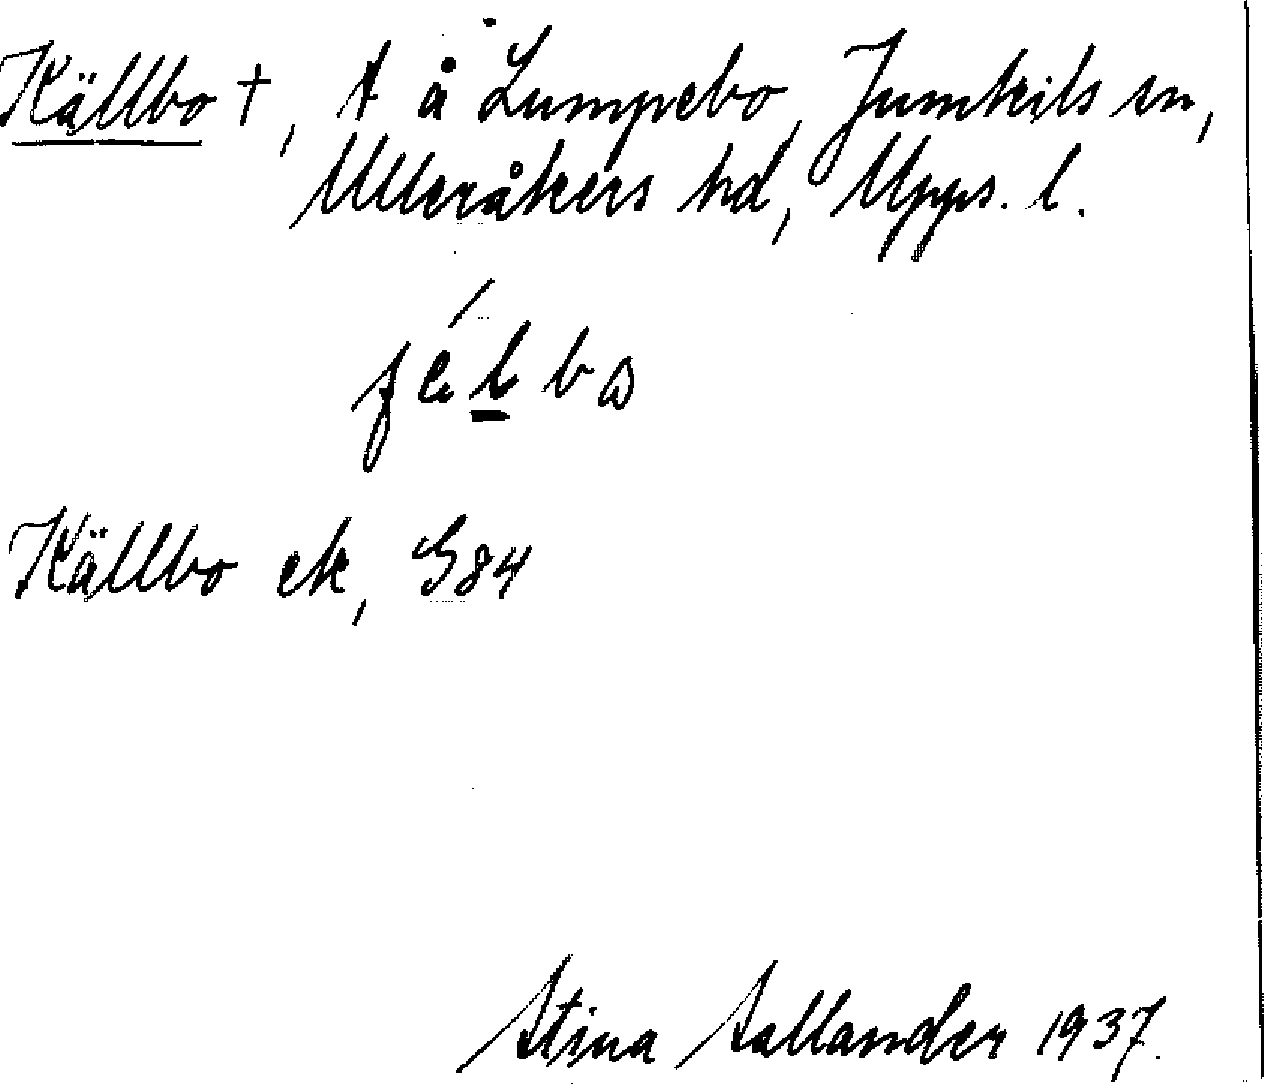 Källbo †, t å Lumpebo, Jumkils sn,
Ulleråkers hd, Upps. l.
Källbo ek, G84
Stina Sallander 1937.